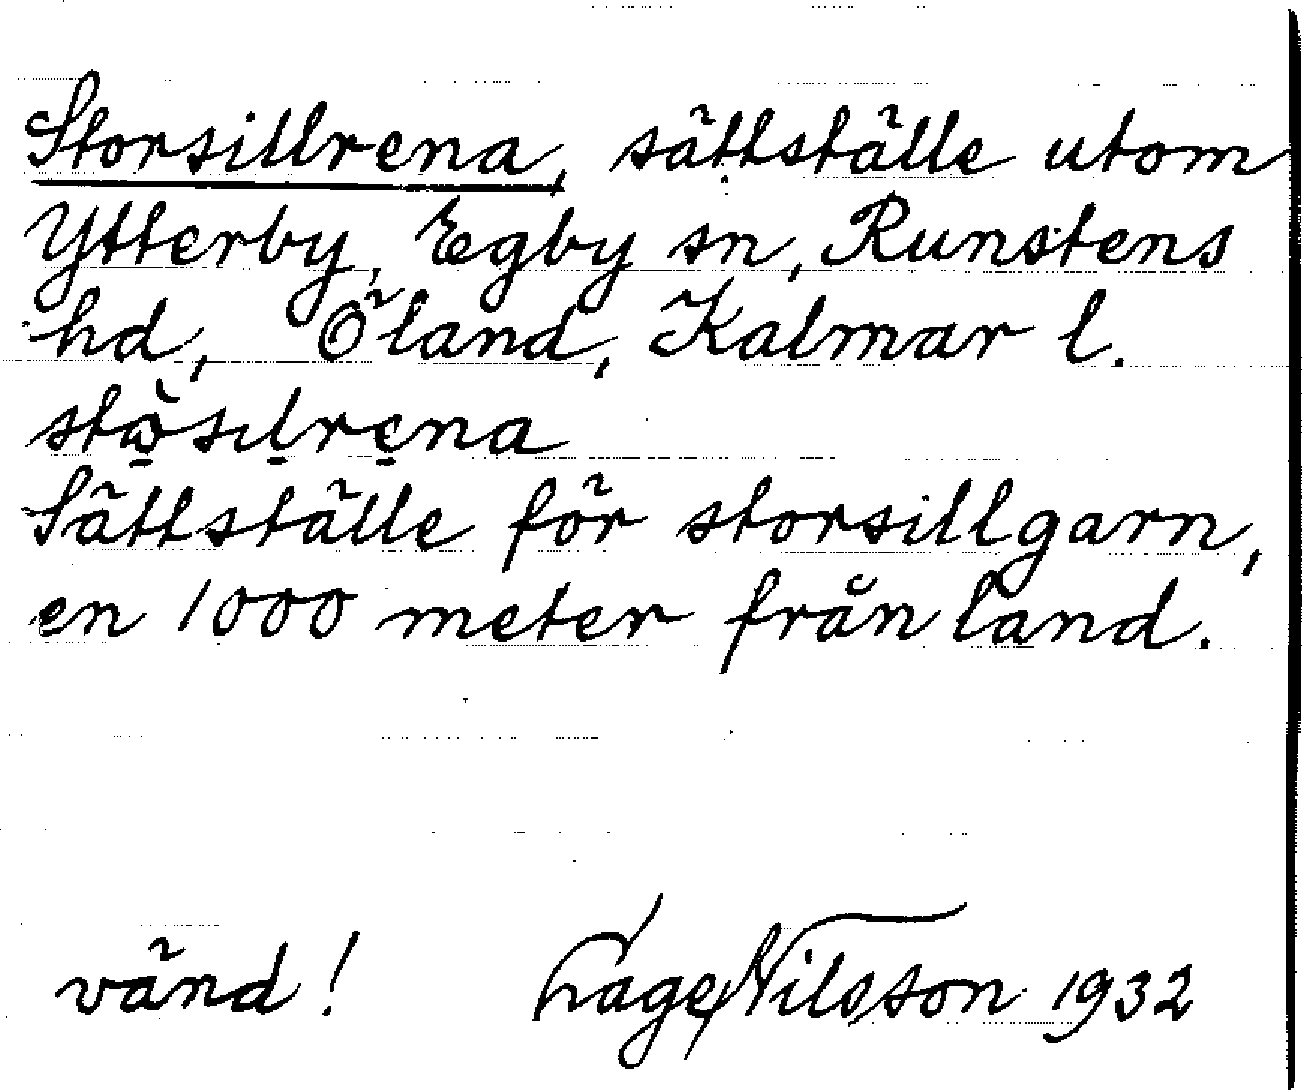 Storsillrena, sättställe utom
Ytterby, Egby sn, Runstens
hd, Öland, Kalmar l.
Sättställe för storsillgarn,
en 1000 meter från land.
vänd! Lage Nilsson 1932